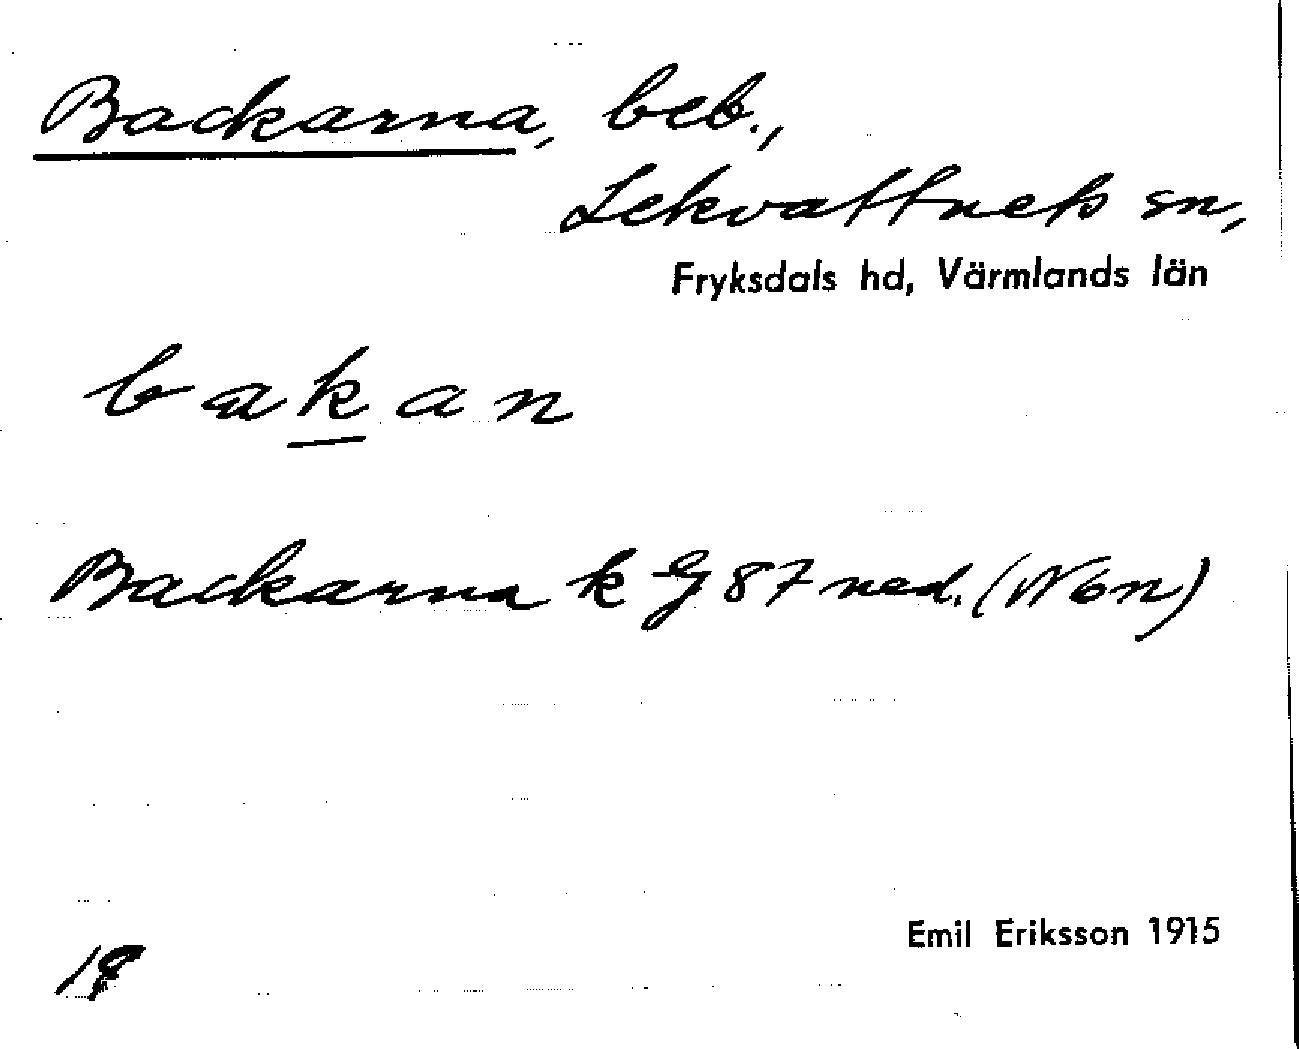 Backarna, beb.,
Lekvattnets sn,
Fryksdals hd, Värmlands län
bakan
Backarna k G 87 ned. (N 6n)
18
Emil Eriksson 1915